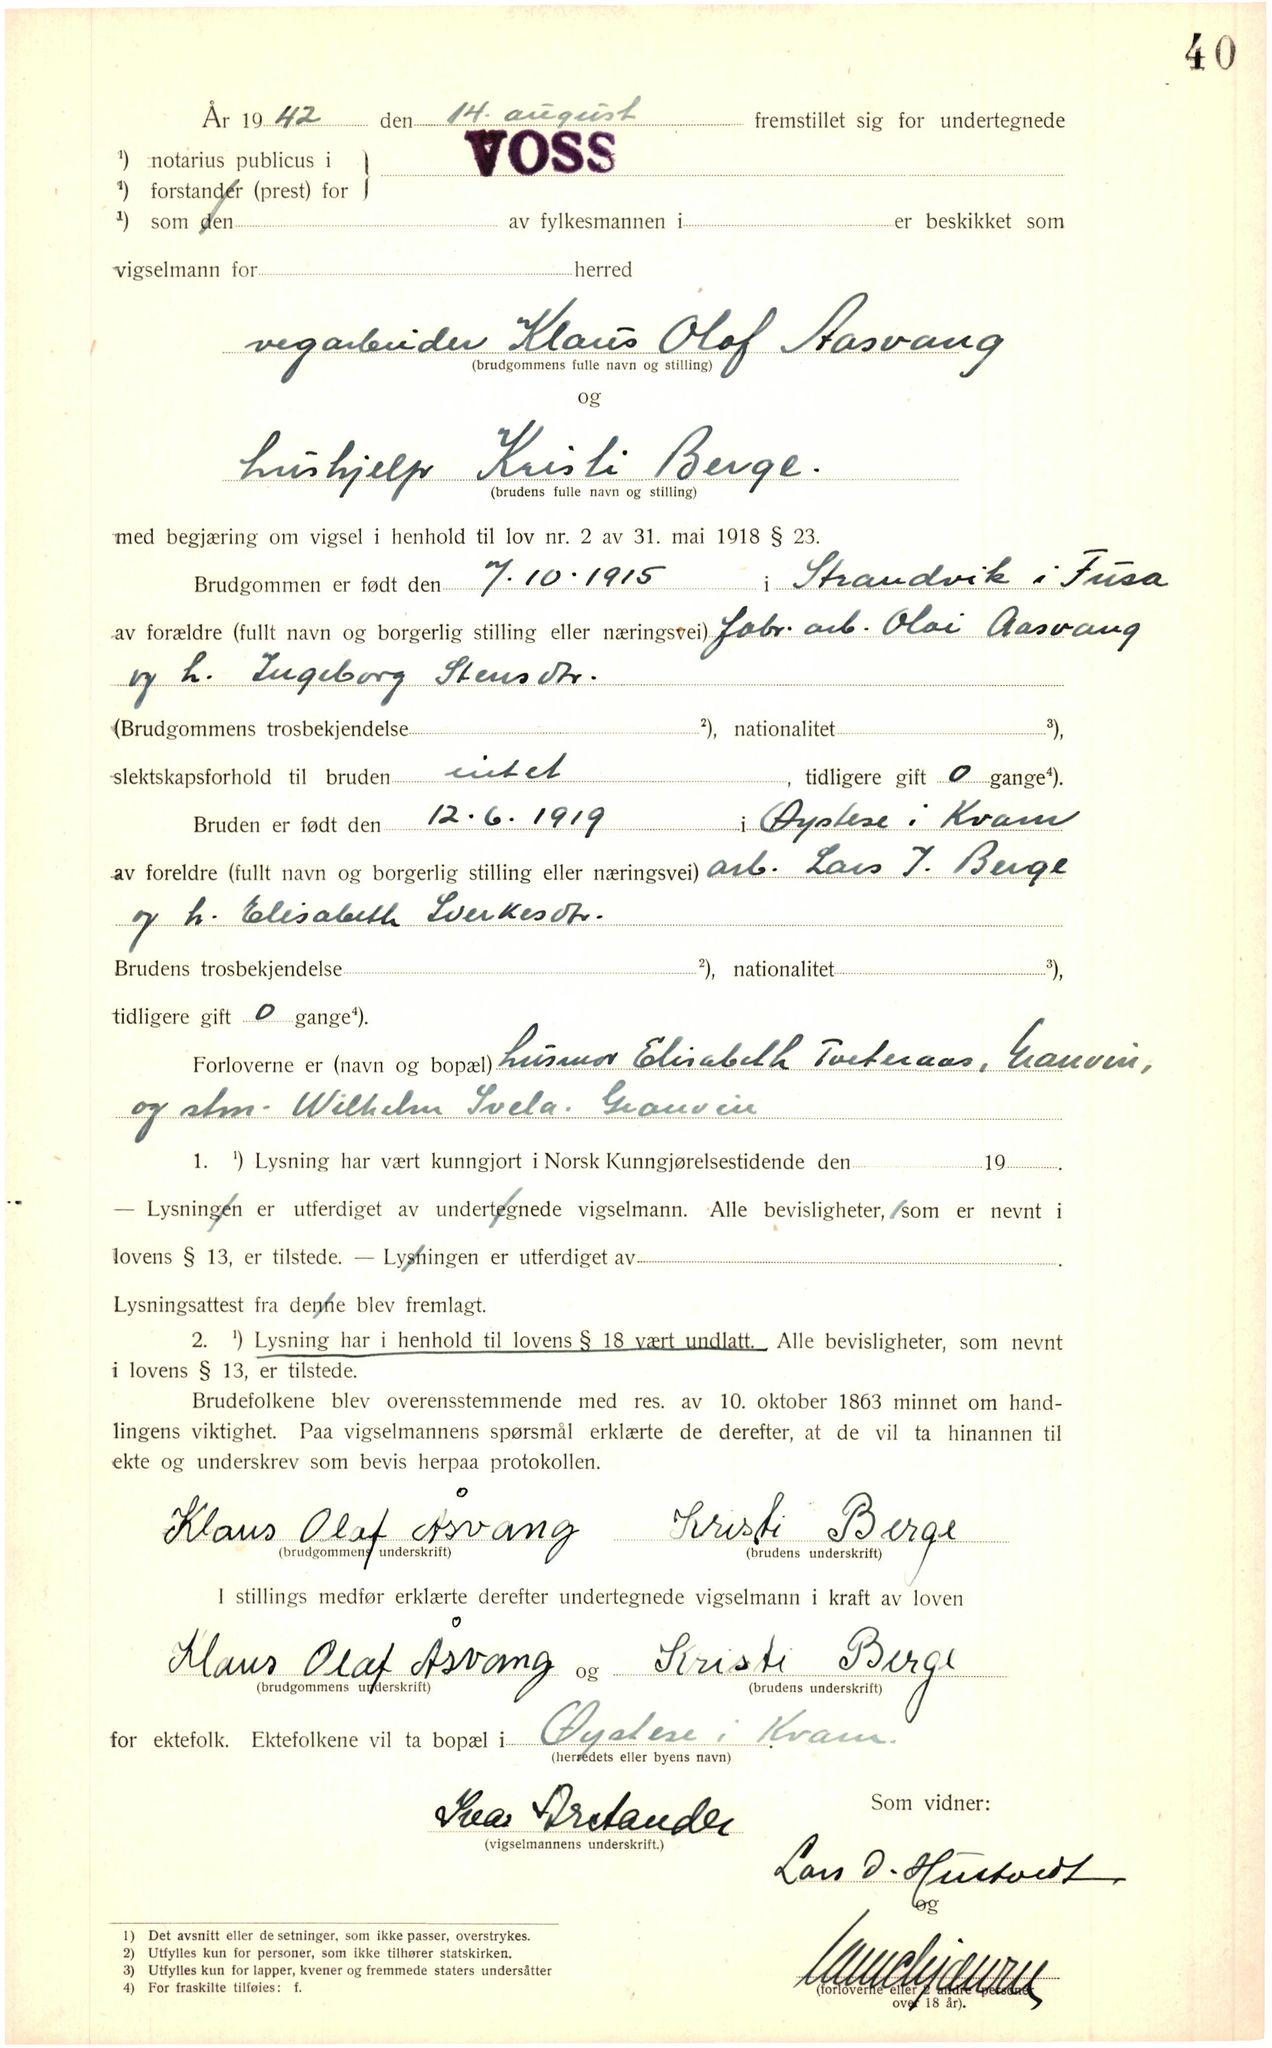 40
År 1942 den 14. august fremstillet sig for undertegnede
¹) notarius publicus i } VOSS
¹) forstander (prest) for
¹) som den av fylkesmannen i er beskikket som
vigselmann for herred
vegarbeider Klaus Olaf Aasvang
(brudgommens fulle navn og stilling)
og
hushjelp Kristi Berge.
(brudens fulle navn og stilling)
med begjæring om vigsel i henhold til lov nr. 2 av 31. mai 1918 § 23.
Brudgommen er født den 7.10.1915 i Strandvik i Fusa
av forældre (fullt navn og borgerlig stilling eller næringsvei) fabr. arb. Olai Aasvang
og h. Ingeborg Stensdtr.
(Brudgommens trosbekjendelse ²), nationalitet ³),
slektskapsforhold til bruden intet, tidligere gift 0 gange⁴).
Bruden er født den 12.6.1919 i Øystese i Kvam
av foreldre (fullt navn og borgerlig stilling eller næringsvei) arb. Lars J. Berge
og h. Elisabeth Sverkesdtr.
Brudens trosbekjendelse ²), nationalitet ³),
tidligere gift 0 gange⁴).
Forloverne er (navn og bopæl) husmor Elisabeth Tveteraas, Granvin,
og stm. Wilhelm Svela. Granvin
1. ¹) Lysning har vært kunngjort i Norsk Kunngjørelsestidende den 19 .
— Lysningen er utferdiget av undertegnede vigselmann. Alle bevisligheter, som er nevnt i
lovens § 13, er tilstede. — Lysningen er utferdiget av .
Lysningsattest fra denne blev fremlagt.
2. ¹) Lysning har i henhold til lovens § 18 vært undlatt. Alle bevisligheter, som nevnt
i lovens § 13, er tilstede.
Brudefolkene blev overensstemmende med res. av 10. oktober 1863 minnet om hand-
lingens viktighet. Paa vigselmannens spørsmål erklærte de derefter, at de vil ta hinannen til
ekte og underskrev som bevis herpaa protokollen.
Klaus Olaf Åsvang Kristi Berge
(brudgommens underskrift) (brudens underskrift)
I stillings medfør erklærte derefter undertegnede vigselmann i kraft av loven
Klaus Olaf Åsvang og Kristi Berge
(brudgommens underskrift) (brudens underskrift)
for ektefolk. Ektefolkene vil ta bopæl i Øystese i Kvam.
(herredets eller byens navn)
Som vidner:
Ivar Årstander
(vigselmannens underskrift.)
Lars D. Hustvedt
og
(forloverne eller 2 andre personer
over 18 år).
1) Det avsnitt eller de setninger, som ikke passer, overstrykes.
2) Utfylles kun for personer, som ikke tilhører statskirken.
3) Utfylles kun for lapper, kvener og fremmede staters undersåtter
4) For fraskilte tilføies: f.